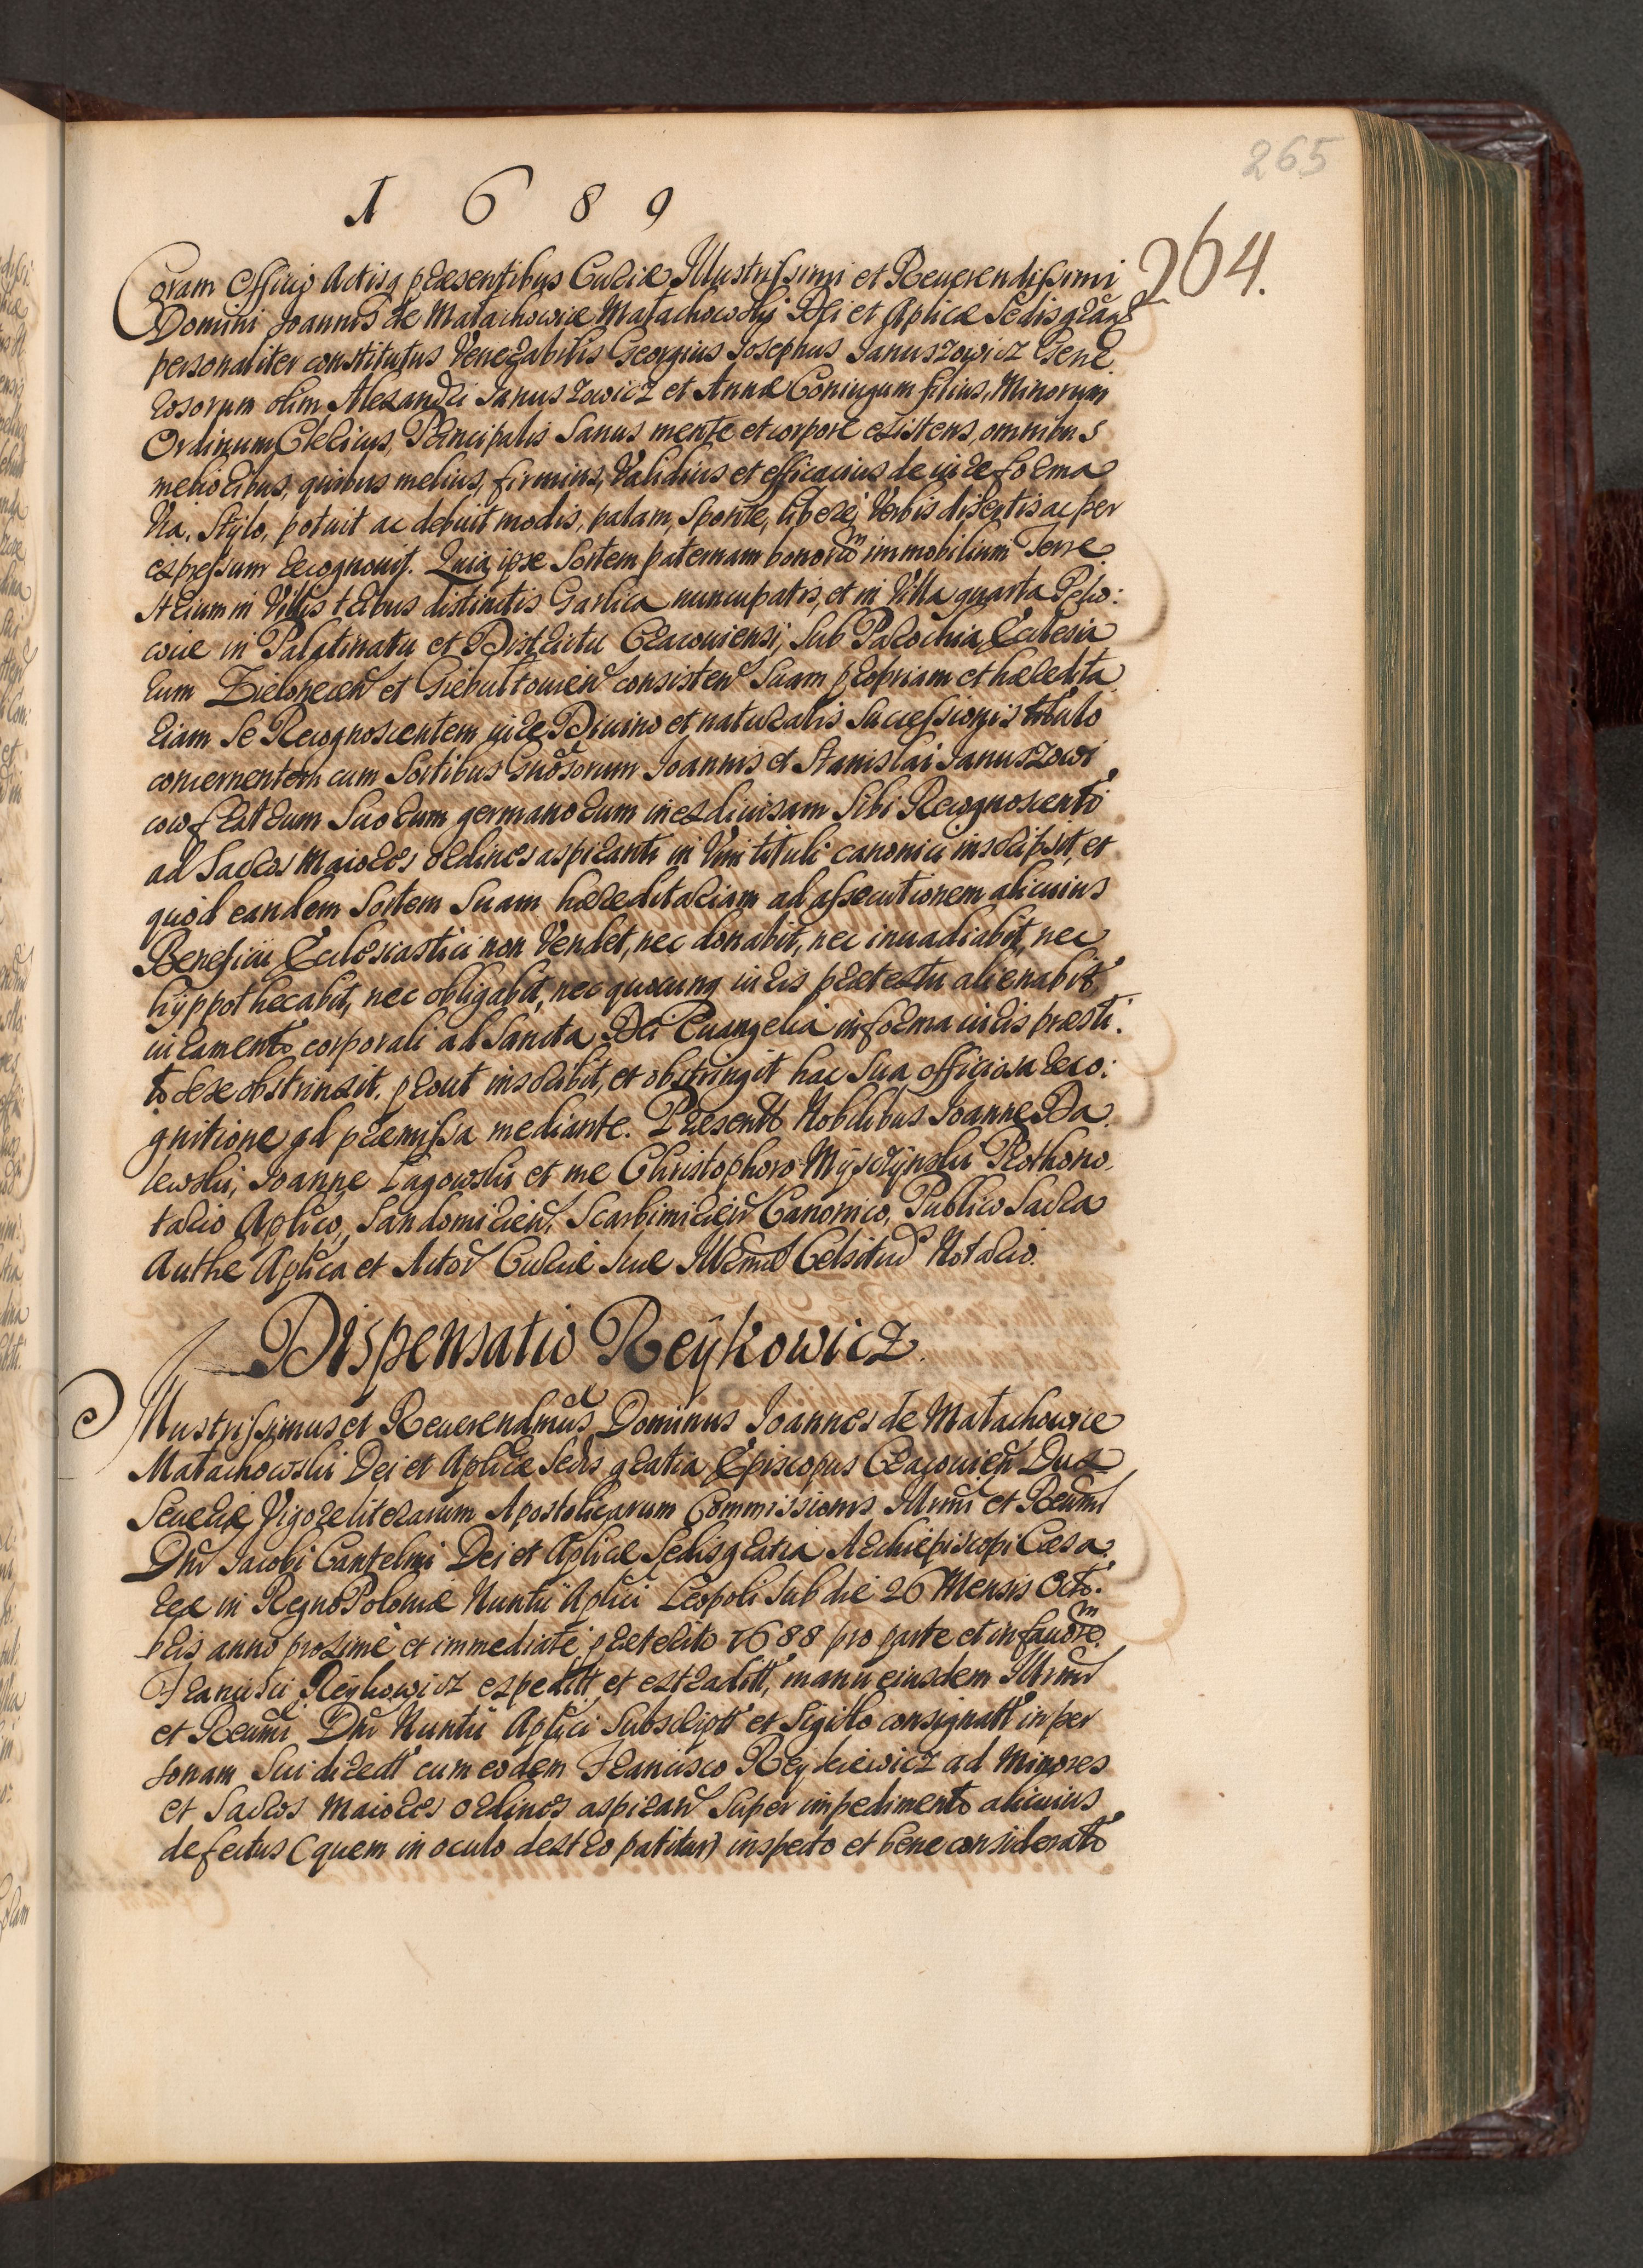 265
1 6 8 9
264.
Coram Officio Actisq praesentibus Curiae Illustrissimi et Reuerendissimi
Domini Joannis de Małachowice Małachowski Dei et Aplicae Sedis gra
personaliter constitutus Venerabilis Georgius Josephus Januszowicz Gene
rosorum olim Alexandri Januszowicz et Annae Coniugum filius, Minorum
Ordinum Clericus, Principalis Sanus mente et corpore existens, omnibus
melioribus, quibus melius, firmius, Validius et efficacius de iure forma
Via, Stylo, potuit ac debuit modis, palam, Sponte, liberè, Verbis disertis ac per
expressum recognouit. Quia ipse Sortem paternam bonorum immobilium Terre
strium in Villis tribus distinctis Garlica nuncupatis, et in Villa quarta
cice in Palatinatu et Districtu Cracouiensi, Sub Parochia Ecclesia
rum Zielonecen et Giebułtouien consisten Suam propriam et haeredita
riam Se Recognoscentem iure Diuino et naturalis Successionis titulo
concernentem cum Sortibus Gnosorum Joannis et Stanislai Januszowi
cow fratrum Suorum germanorum inexdiuisam Sibi Recognoscenti
ad Sacros maiores ordines aspiranti in Vim tituli canonici inscripsit, et
quòd eandem Sortem Suam haereditariam ad assecutionem alicuius
Beneficii Ecclesiastici non Vendet, nec donabit, nec inuadiabit, nec
hyppothecabit, nec obligabit, nec quocunq iuris praetextu alienabit
iuramento corporali ad Sancta Dei Euangelia in forma iuris praesti
to sese obstrinxit, prout inscribit, et obstringit hac Sua officiosa reco:
gnitione ad praemissa mediante. Praesentt Nobilibus Joanne Da
lewski, Joanne Łagowski et me Christophoro Mÿsczÿnski Prothono
tario Aplico, Sandomirien, Scarbimirien Canonico, Publico Sacra
Authe Aplica et Actor Curiae Suae Illmae Celsitud Notario.
Dispensatio Reÿkowicz.
Illustrissimus et Reuerendmus Dominus Joannes de Małachowice
Małachowski Dei et Aplicae Sedis gratia Episcopus Cracouien Dux
Seueriae Vigore literarum Apostolicarum Commissionis Illrmi et Reumi
Dni Jacobi Cantelmi Dei et Aplicae Sedis gratia Archiepiscopi Caesa
reae in Regno Poloniae Nuntii Aplici Leopoli Sub die 26 Mensis Octo:
bris anno proximè et immediatè praeterito 1688 pro parte et in fauorem
Francisci Reÿkowicz expeditt et extraditt, manu eiusdem Illrmi
et Reumi Dni Nuntii Aplici Subscriptt et Sigillo consignatt in per
sonam Sui directt cum eodem Francisco Reykiewicz ad Minores
et Sacros maiores ordines aspiran Super impedimento alicuius
defectus (quem in oculo dextro patitur) inspecto et bene considerato